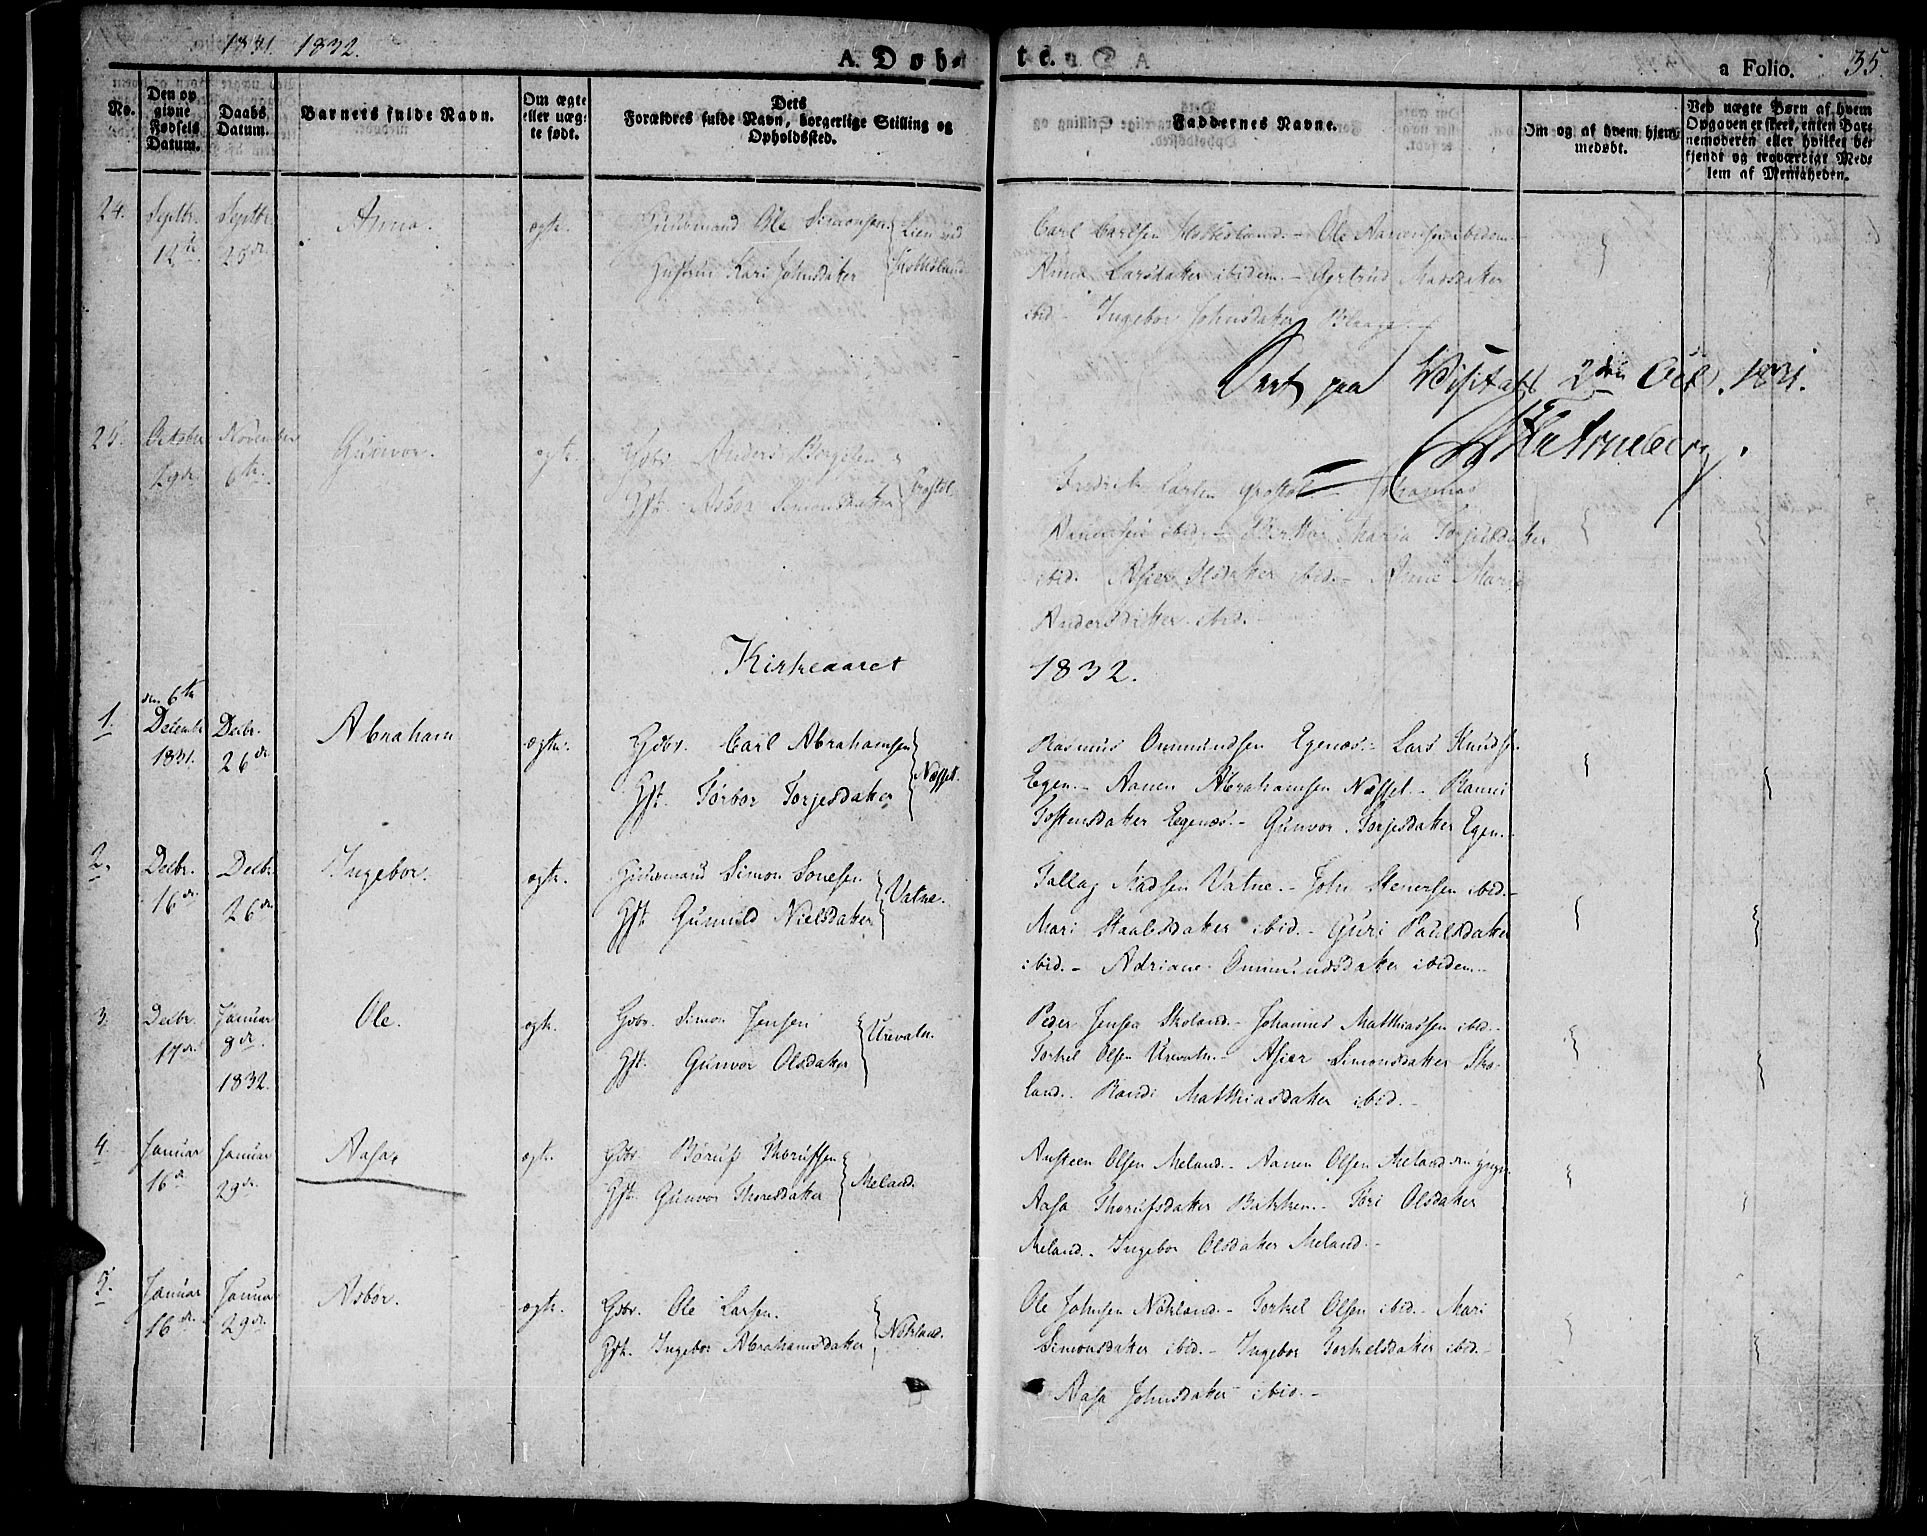 1831. 1832.
A. Døb-
te.
a Folio. 35.
No.
Den opgivne Fødsels Datum.
Daabs Datum.
Barnets fulde Navn.
Om ægte eller uægte født.
Dets Forældres fulde Navn, borgerlige Stilling og Opholdsted.
Faddernes Navne.
Om og af hvem hjemmedøbt.
Ved uægte Børn af hvem Opgaven er skeet, enten Barnemoderen eller hvilket bekjendt og troværdigt Medlem af Menigheden.
24. Septbr. 12te Septbr. 25de Anna. ægte. Huusmand Ole Simonsen
Hustru Kari Johnsdatter Lien ved
Carl Carlsen Ole Aanensen ibidem
Anna Larsdatter ibidem. - Gertrud Madsdatter
ibid - Ingebor Johnsdatter
Seet paa Visitats 2den Oct. 1831.
25. October 29de November 6te. Gunvor. ægte. Gdbr. Anders Borgesen
Hst. Asbor Simonsdatter
Fredrik Larsen
Aanensen ibid. - Maria Torjusdatter
ibid. Asier Olsdatter ibid. - Anne Marie
Andersdatter ibid.
Kirkeaaret
1832.
1. den 6te Decembr 1831. Decbr. 26de Abraham ægte. Gdbr. Carl Abrahamsen
Hst. Torbor Torjesdatter Næsset.
Rasmus Ommundsen Egenæs. - Lars Knuds.
Egen. - Aanen Abrahamsen Næsset. -
Tostensdatter Egenæs. - Gunvor Torjesdatter Egen.
2. Decbr. 16de Decbr 26de Ingebor. ægte. Huusmand Simon Sonesen
Hst. Gunnild Nielsdatter Vatne.
Tallag Madsen Vatne. - John Stenersen ibid -
Mari Staalesdatter ibid. - Guri Paulsdatter
ibid. - Adriane Ommundsdatter ibidem -
3. Decbr. 17de Januar 8de. 1832. Ole. ægte. Gdbr. Simon Jensen
Hst. Gunvor Olsdatter Urevatn.
Peder Jensen Skoland. - Johannes Matthiassen ibid. -
Torkel Olsen Urevatn. - Asier Simonsdatter Sko-
land. Randi Matthiasdatter ibid. -
4. Januar 16de Januar 29de. Aasa ægte. Gdbr. Børuf Thorufsen
Hst. Gunvor Thoresdatter Meland.
Austeen Olsen Meland. - Aanen Olsen Meland den yngr.
Aasa Thorufsdatter Bakken. - Tøri Olsdatter
Meland. - Ingebor Olsdatter Meland. -
5. Januar 16de. Januar 29de. Asbor. ægte. Gdbr. Ole Larsen.
Hst. Ingebor Abrahamsdatter Nøkland.
Ole Johnsen Nøkland. - Torkel Olsen ibid. - Mari
Simonsdatter ibid. - Ingebor Torkelsdatter ibid. -
Aasa Johnsdatter ibid. -